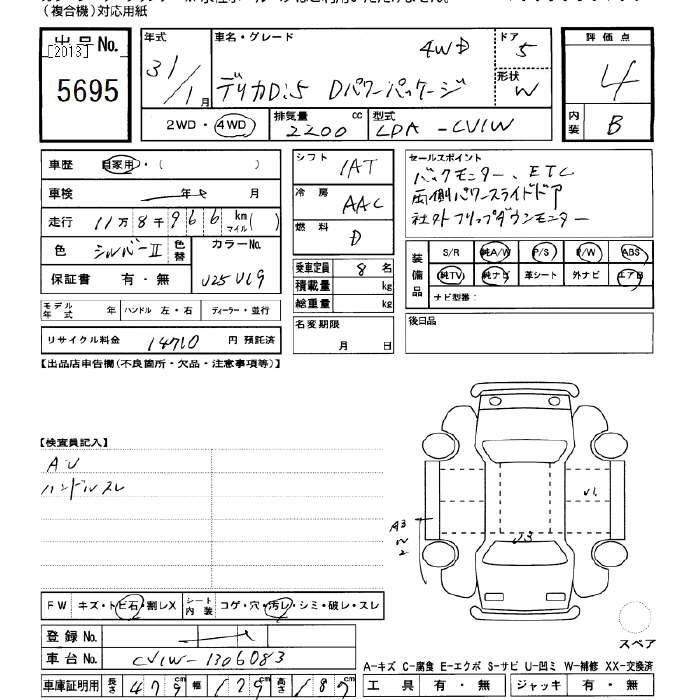 （複合機）対応用紙
出品No.
[2013]
5695
年式
31/1月
車名・グレード
4WD
デリカD:5 Dパワーパッケージ
ドア
5
形状
W
2WD・4WD
排気量
2200 cc
型式
LDA-CV1W
評価点
4
内装
B
車歴 自家用・( )
車検 年 月
走行 11万8千966 km マイル( )
色 シルバーII 色替
カラーNo.
U25 U19
保証書 有・無
モデル年式 年 ハンドル 左・右 ディーラー・並行
リサイクル料金 14710 円 預託済
シフト
IAT
冷房
AAC
燃料
D
乗車定員 8 名
積載量 kg
総重量 kg
名変期限
月 日
セールスポイント
バックモニター、ETC
両側パワースライドドア
社外フリップダウンモニター
装備品
S/R 純A/W P/S P/W ABS
純TV 純ナビ 革シート 外ナビ エアB
ナビ型番：
後日品
【出品店申告欄（不良箇所・欠品・注意事項等）】
【検査員記入】
AU
ハンドルスレ
A3
W2
U3
U1
FW キズ・トビ石・割レX シート内装 コゲ・穴・汚レ・シミ・破レ・スレ
登録No.
車台No. CV1W-1306083
車庫証明用 長さ 479cm 幅 179cm 高さ 187cm
スペア
A-キズ C-腐食 E-エクボ S-サビ U-凹ミ W-補修 XX-交換済
工具 有・無 ジャッキ 有・無